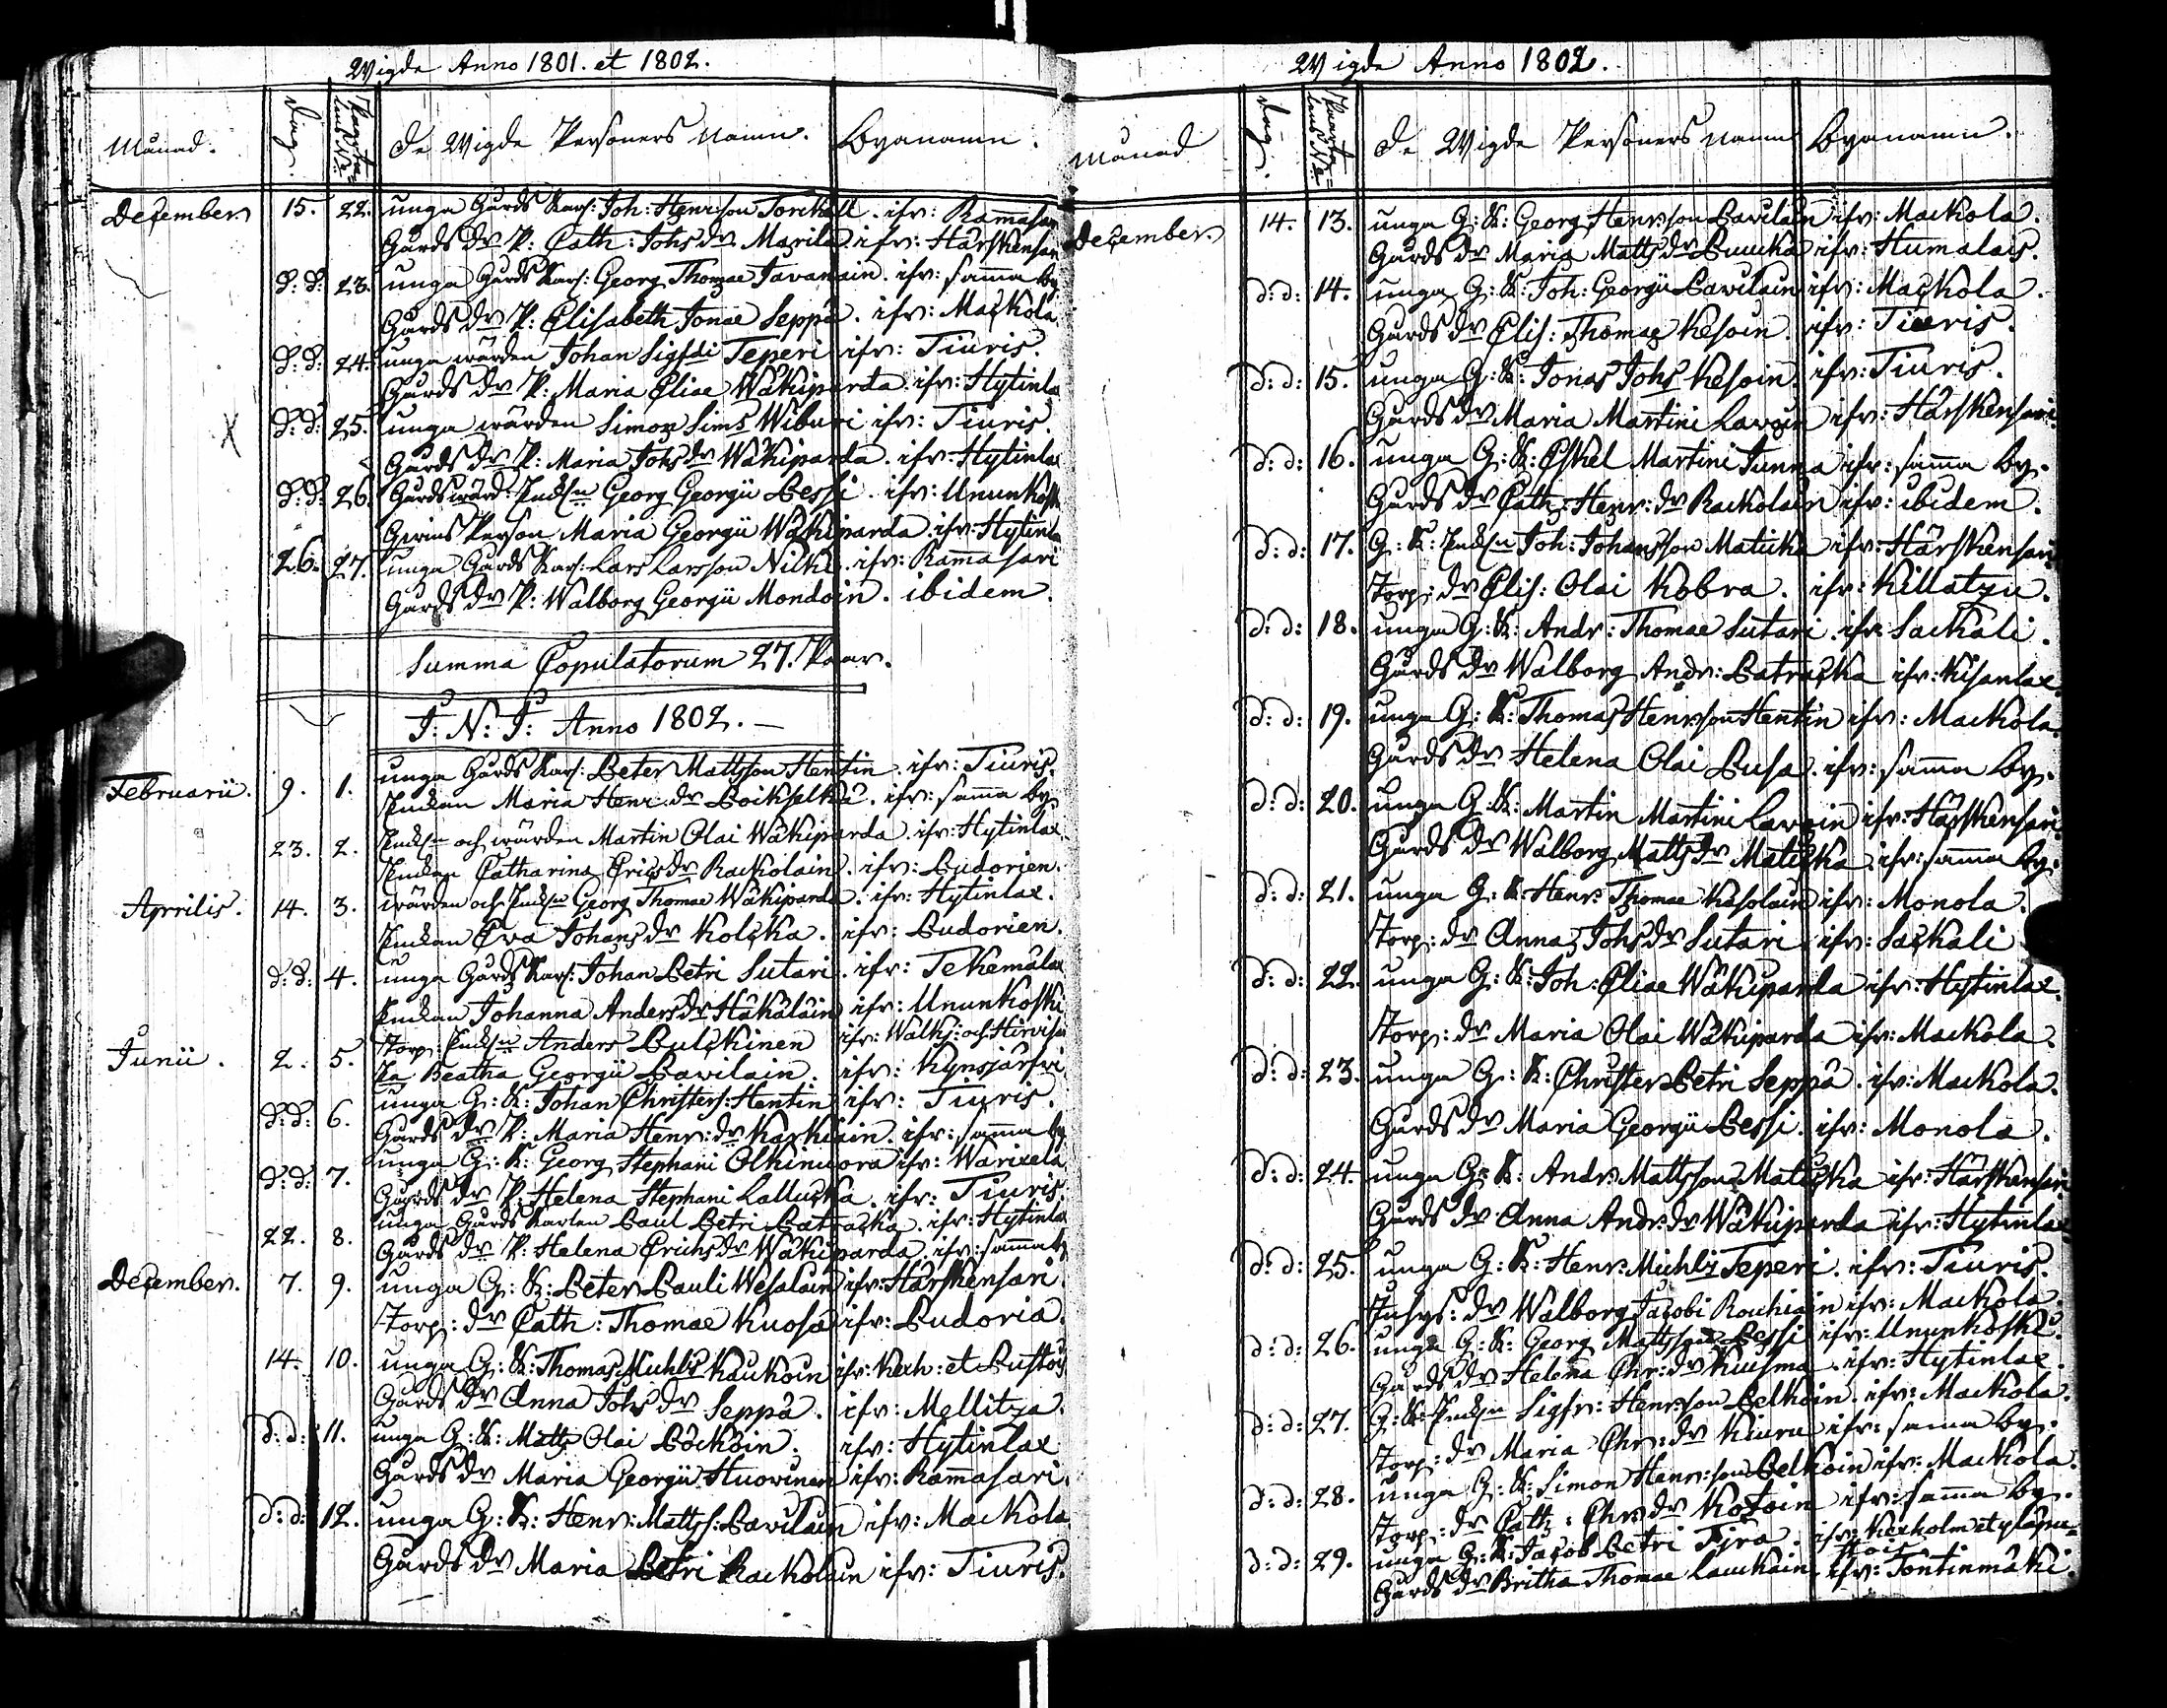 Wigde Anno 1801. et 1802.
Månad. Dag. Paarta= lens No. De Wigde Personers Namn. Byanamn.
December 15. 22. unga Gårds Karl: Joh: Henr:son Torikall. ifr: Ramasari
Gårds dr P: Cath: Johs dr Marila. ifr: Härskensari
d: d: 23. unga Gårds Karl: Georg Thomae Javanain. ifr: samma by
Gårds dr P: Elisabeth Jonae Seppä. ifr: Mackola
d: d: 24. unga wärden Johan Sigfdi Teperi ifr: Tiuris.
Gårds dr P: Maria Eliae Wäkiparda. ifr: Hytinla
d: d: 25. unga wärden Simon Sims Wiburi ifr: Tiuris.
Gårds dr P: Maria Johs dr Wäkiparda. ifr: Hytinlax
d: d: 26. Gårds wärd: Enkln Georg Georgii Pessi. ifr: Ununkoski
Person Maria Georgii Wäkiparda ifr: Hytinla
26. 27. unga Gårds Karl: Lars Larsson Nilki. ifr: Ramasari
Gårds dr P: Walborg Georgii Mondoin. ibidem.
Summa Copulatorum 27. Paar.
J: N: J: Anno 1802.
Februarii. 9. 1. unga Gårds Karl: Peter Mattsson Hentin. ifr: Tiuris.
Enkan Maria Henr: dr Poikselkä. ifr: samma by
23. 2. Enkln och wärden Martin Olai Wäkiparda. ifr: Hytinlax.
Enkan Catharina Erics dr Rackolain. ifr: Pudorien.
Aprilis. 14. 3. wärden och Enkln Georg Thomae Wäkiparda. ifr: Hytinlax.
Enkan Eva Johans dr Kolcka. ifr: Pudorien.
d: d: 4. unga Gårds Karl: Johan Petri Sutari. ifr: Tekemälax
Enkan Johanna Anders dr Häkäläin ifr: Ununkoski
Junii. 2. 5. Torp: Enkln Anders Pulckinen ifr: Walkj: och Hirvisa
Ea Beatha Georgii Pavilain. ifr: Kynsjärfvi
d: d: 6. unga G: K: Johan Christers: Hentin ifr: Tiuris.
Gårds dr P: Maria Henr: dr Karkiain. ifr: samma by
d: d: 7. unga G: K: Georg Stephani Olkinuora ifr: Warixela
Gårds dr P: Helena Stephani Lallucka. ifr: Tiuris.
22. 8. unga Gårds Karlen Paul Petri Patracka. ifr: Hytinlax
Gårds dr P: Helena Erichs dr Wäkiparda. ifr: samma by
December. 7. 9. unga G: K: Peter Pauli Wesalain ifr: Härskensari
Torp: dr Cath: Thomae Kuosa ifr: Pudoria.
14. 10. unga G: K: Thomas Michls Kaukoin ifr: Kexh: et Pustois
Gårds dr Anna Johs dr Seppä. ifr: Mellitza.
d: d: 11. unga G: K: Matts Olai Pöcköin. ifr: Hytinlax
Gårds dr Maria Georgii Huovinen ifr: Ramasari.
d: d: 12. unga G: K: Henr: Mattss: Pavilain ifr: Mackola
Gårds dr Maria Petri Rackolain ifr: Tiuris.
Wigde Anno 1802.
Månad Dag. Paarta= lens No. De Wigde Personers Namn Byanamn.
December. 14. 13. unga G: K: Georg Henr:son Pavilain ifr: Mackola.
Gårds dr Maria Matts dr Puucka ifr: Humalais.
d: d: 14. unga G: K: Joh: Georgii Pavilain ifr: Mackola.
Gårds dr Elis: Thomae Kesoin. ifr: Tiuris.
d: d: 15. unga G: K: Jonas Johs Kesoin. ifr: Tiuris.
Gårds dr Maria Martini Lavoin ifr: Härskensari.
d: d: 16. unga G: K: Eskel Martini Junna ifr: samma by.
Gårds dr Cath: Henr: dr Rackolain ifr: ibidem.
d: d: 17. G: K: Enkln Joh: Johansson Maticka ifr: Härskensari
Torp: dr Elis: Olai Kobra. ifr: Killatzu.
d: d: 18. unga G: K: Andr: Thomae Sutari. ifr: Sackali.
Gårds dr Walborg Andr: Patracka ifr: Kisanlax.
d: d: 19. unga G: K: Thomas Henr:son Hentin ifr: Mackola
Gårds dr Helena Olai Pusa. ifr: samma by.
d: d: 20. unga G: K: Martin Martini Lavoin ifr: Härskensari.
Gårds dr Walborg Matts dr Maticka. ifr: samma by.
d: d: 21. unga G: K: Henr: Thomae Kesolain ifr: Monola.
Torp: dr Anna Johs dr Sutari ifr: Sackali
d: d: 22. unga G: K: Joh: Eliae Wäkiparda ifr: Hytinlax.
Torp: dr Maria Olai Wäkiparda ifr: Mackola.
d: d: 23. unga G: K: Christer Petri Seppä. ifr: Mackola.
Gårds dr Maria Georgii Pessi. ifr: Monola.
d: d: 24. unga G: K: Andr: Mattsson Maticka ifr: Härskensari
Gårds dr Anna Andr: dr Wäkiparda ifr: Hytinlax
d: d: 25. unga G: K: Henr: Michls Teperi. ifr: Tiuris.
dr Walborg Jacobi Rouhiain ifr: Mackola.
d: d: 26. unga G: K: Georg Mattsson Pessi ifr: Ununkoski.
Gårds dr Helena Chr: dr Kuisma. ifr: Hytinlax.
d: d: 27. G: K: Enkln Sigfr: Henr:son Pelkoin. ifr: Mackola.
Torp: dr Maria Chr: dr Kiuru ifr: samma by.
d: d: 28. unga G: K: Simon Henr:son Pelkoin ifr: Mackola.
Torp: dr Cath: Chr: dr Kozoin ifr: samma by.
d: d: 29. unga G: K: Jacob Petri Tjra. ifr: Kexholm et
Gårds dr Britha Thomae Lauckain. ifr: Tontinmäki